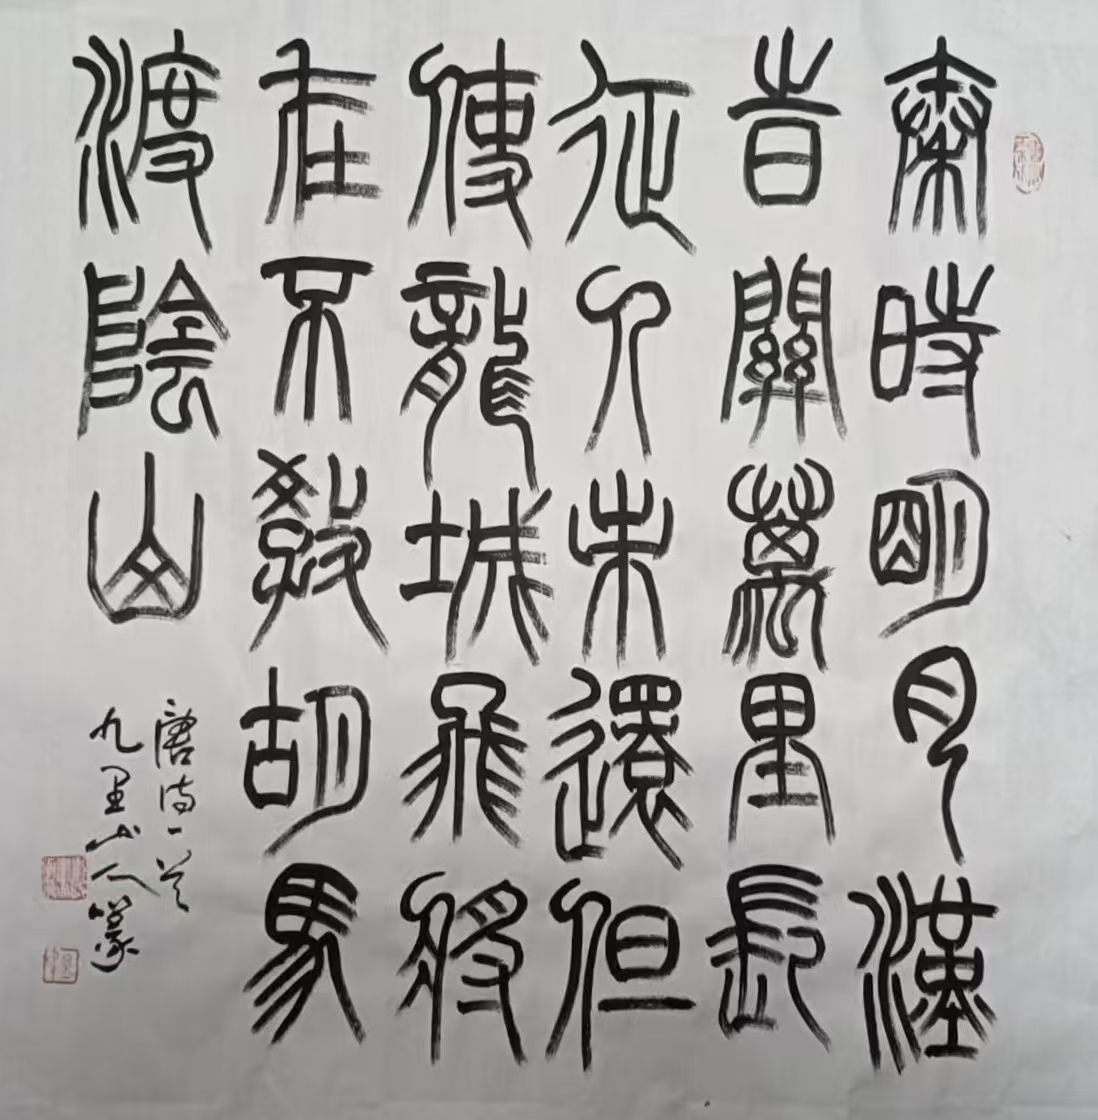 秦時明月漢
旹關萬里長
征人未還但
使龍城飛將
在不教胡馬
渡陰山
唐詩一首
九里山人篆